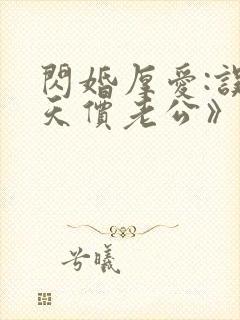 閃婚厚愛:誤
天價老公》
兮曦